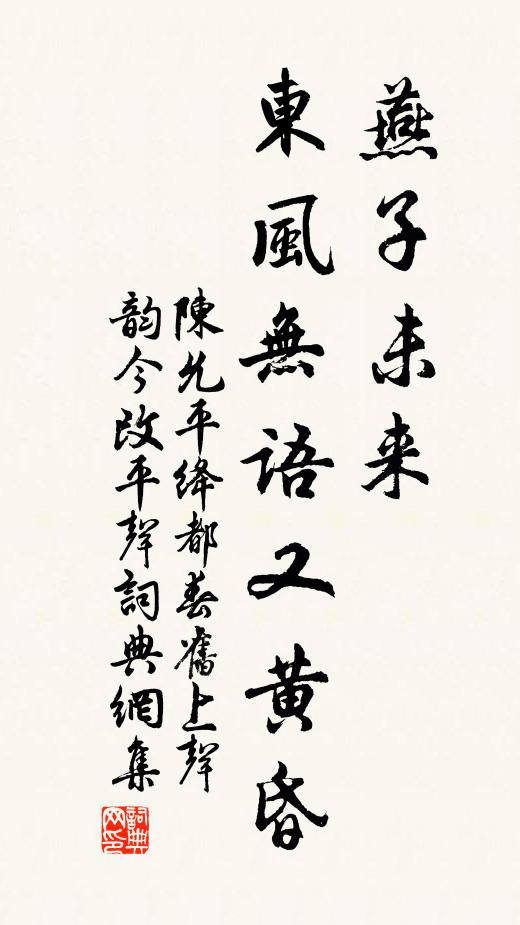 燕子未来
東風無語又黃昏
陳允平绛都春舊上聲
韵今改平聲詞典網集
詞典网印